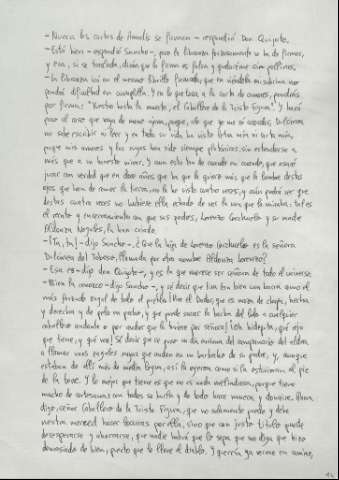 -Nunca las cartas de Amadís se firman -respondió Don Quijote.
-Está bien -respondió Sancho-, pero la libranza forzosamente se ha de firmar,
y esa, si se traslada, dirán que la firma es falsa y quedaréme sin pollinos.
-La libranza irá en el mesmo librillo firmada, que en viéndola mi sobrina no
pondrá dificultad en cumplilla. Y en lo que toca a la carta de amores, pondrás
por firma: "Vuestro hasta la muerte, el Caballero de la Triste Figura". Y hará
poco al caso que vaya de mano ajena, porque, a lo que yo me sé acordar, Dulcinea
no sabe escribir ni leer y en toda su vida ha visto letra mía ni carta mía,
porque mis amores y los suyos han sido siempre platónicos, sin estenderse a
más que a un honesto mirar. Y aun esto tan de cuando en cuando, que osaré
jurar con verdad que en doce años que ha que la quiero más que la lumbre destos
ojos que han de comer la tierra, no la he visto cuatro veces, y aun podrá ser que
destas cuatro veces no hubiese ella echado de ver la una que la miraba: tal es
el recato y encerramiento con que sus padres, Lorenzo Corchuelo y su madre
Aldonza Nogales, la han criado.
-¡Ta, ta! -dijo Sancho-. ¿Que la hija de Lorenzo Corchuelo es la señora
Dulcinea del Toboso, llamada por otro nombre Aldonza Lorenzo?
-Esa es -dijo don Quijote-, y es la que merece ser señora de todo el universo.
-Bien la conozco -dijo Sancho-, y sé decir que tira tan bien una barra como el
más forzudo zagal de todo el pueblo. ¡Vive el Dador, que es moza de chapa, hecha
y derecha y de pelo en pecho, y que puede sacar la barba del lodo a cualquier
caballero andante o por andar que la tuviere por señora! ¡Oh hideputa, qué rejo
que tiene, y qué voz! Sé decir que se puso un día encima del campanario del aldea
a llamar unos zagales suyos que andaban en un barbecho de su padre, y, aunque
estaban de allí más de media legua, así la oyeron como si estuvieran al pie
de la torre. Y lo mejor que tiene es que no es nada melindrosa, porque tiene
mucho de cortesana: con todos se burla y de todo hace mueca y donaire. Ahora
digo, señor Caballero de la Triste Figura, que no solamente puede y debe
vuestra merced hacer locuras por ella, sino que con justo título puede
desesperarse y ahorcarse, que nadie habrá que lo sepa que no diga que hizo
demasiado de bien, puesto que le lleve el diablo. Y querría ya verme en camino,